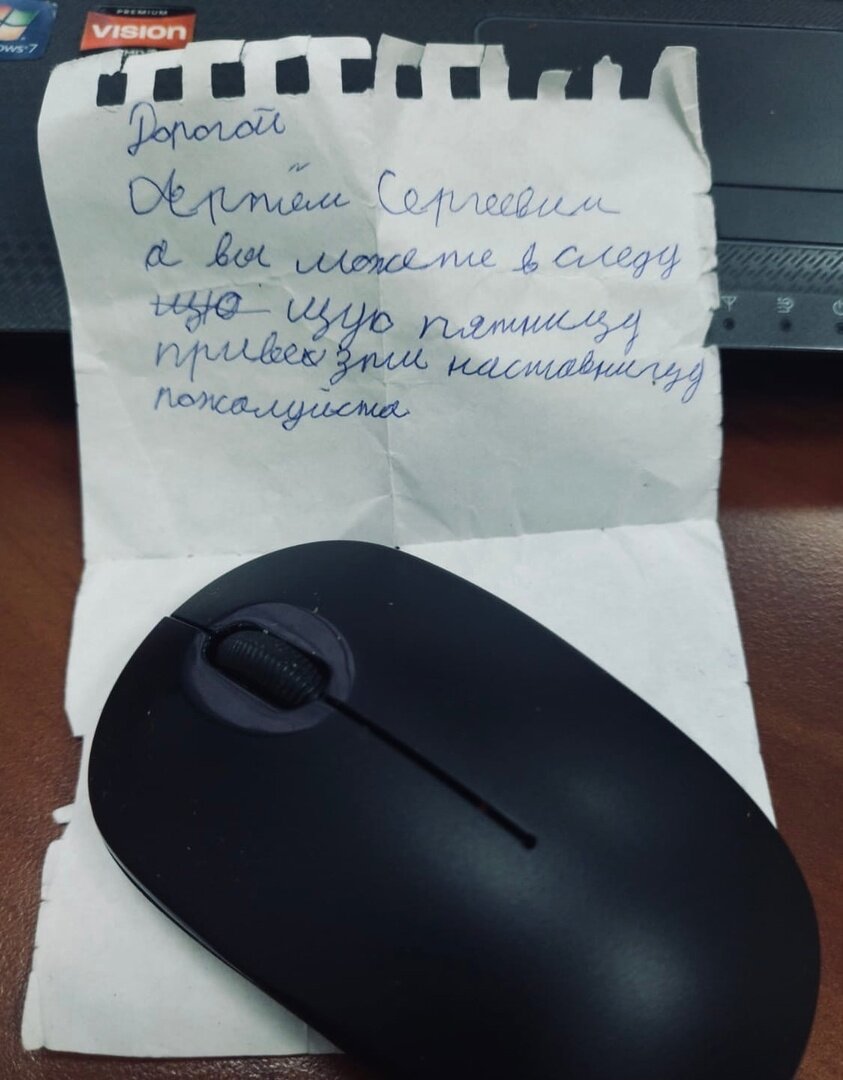 PREMIUM
VISION
AMD
ows 7
Дорогой
Артём Сергеевич
а вы можете в следу
щую щую пятницу
привехзти наставницу
пожалуйста